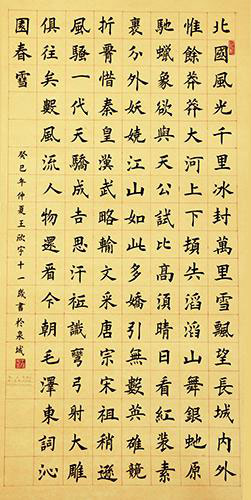 北國風光千里冰封萬里雪飄望長城內外
惟餘莽莽大河上下頓失滔滔山舞銀虵原
馳蠟象欲與天公試比高須晴日看紅裝素
裹分外妖嬈江山如此多嬌引無數英雄競
折腰惜秦皇漢武略輸文采唐宗宋祖稍遜
風騷一代天驕成吉思汗祗識彎弓射大雕
俱往矣數風流人物還看今朝毛澤東詞沁
園春雪
癸巳年仲夏王欣宇十一歲書於泉城